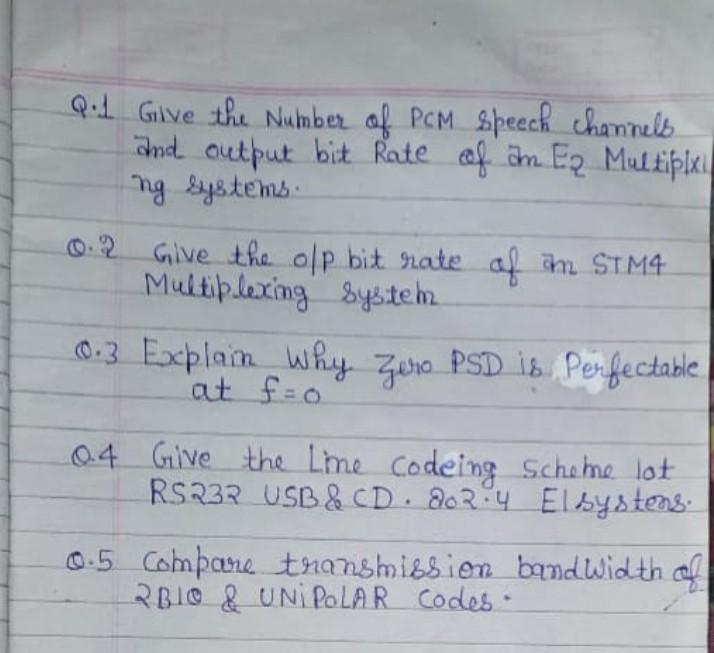 Q.1 Give the Number of PCM speech channels
and output bit Rate of an E2 Multiplxi
ng systems.
Q.2 Give the o/p bit rate of an STM4
Multiplexing system
Q.3 Explain Why Zero PSD is Perfectable
at f=0
Q.4 Give the Line Codeing Scheme lot
RS232 USB & CD. 802.4 E1 systens.
Q.5 Compare transmission bandWidth of
2B1Q & UNiPOLAR Codes.